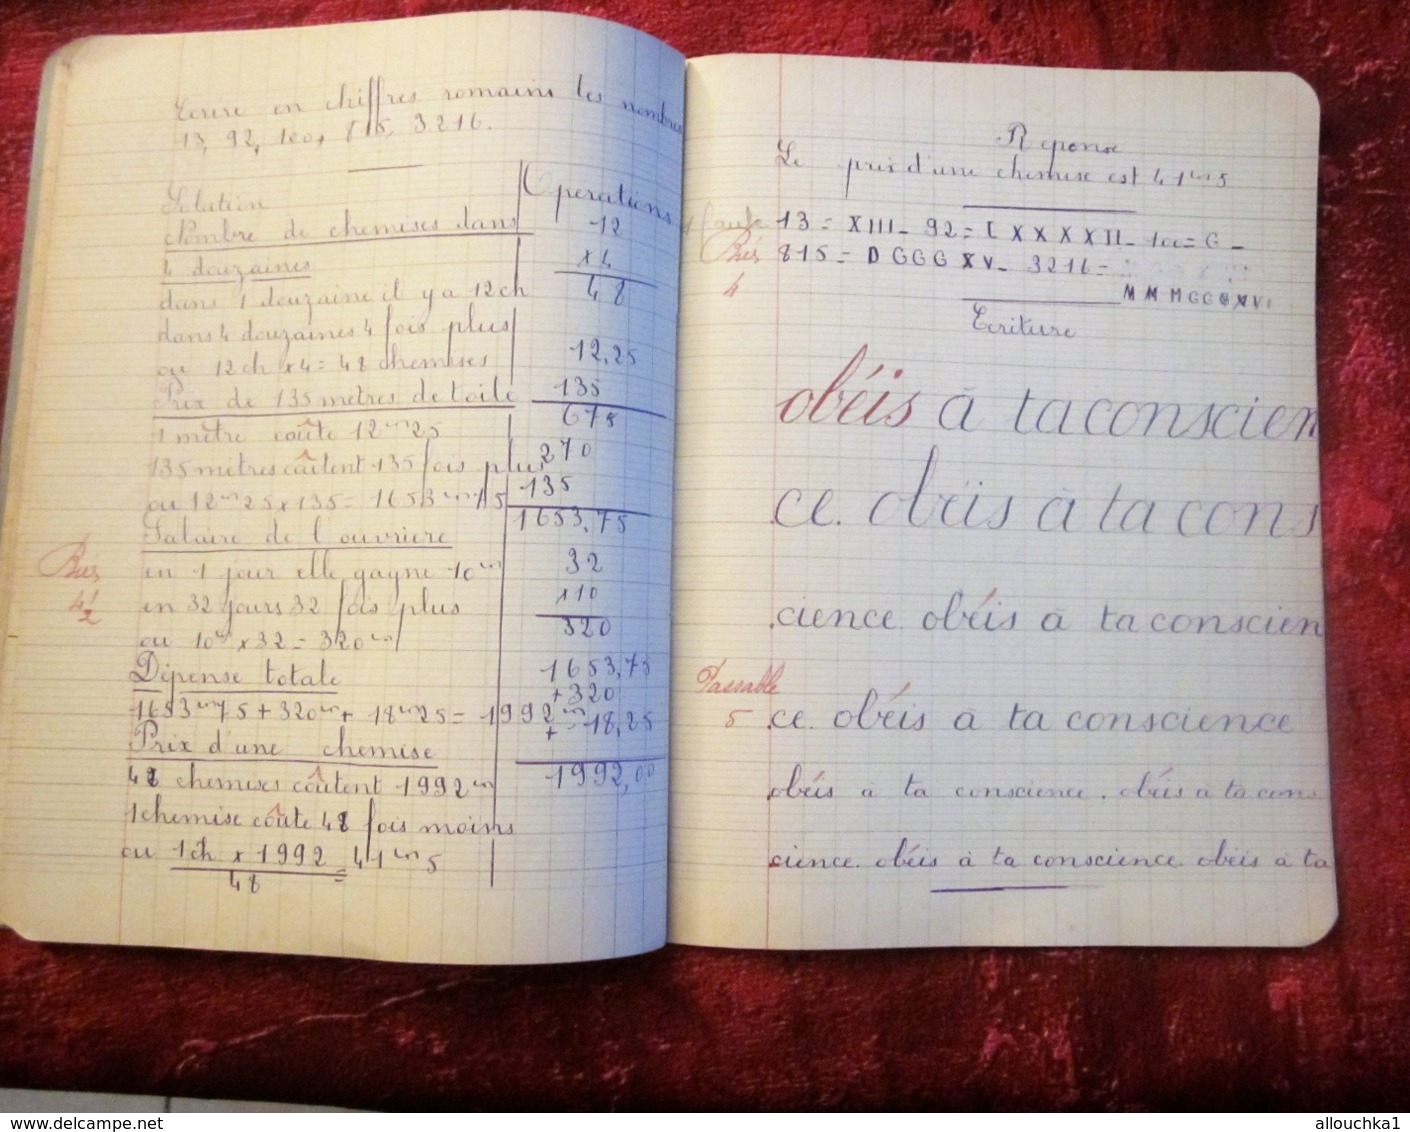 Ecrire en chiffres romains les nombres
13, 92, 100, 815, 3216.
Solution
Opérations
Nombre de chemises dans
4 douzaines
dans 1 douzaine il y a 12 ch
dans 4 douzaines 4 fois plus
ou 12 ch x 4 = 48 chemises
Prix de 135 mètres de toile
1 mètre coûte 12 25
135 mètres coûtent 135 fois plus
ou 12 25 x 135 = 1653 75
Salaire de l'ouvrière
en 1 jour elle gagne 10
en 32 jours 32 fois plus
ou 10 x 32 = 320
Dépense totale
1653 75 + 320 + 18 25 = 1992
Prix d'une chemise
48 chemises coûtent 1992
1 chemise coûte 48 fois moins
ou 1 ch x 1992 = 41 5
48
12
x 4
48
12,25
135
675
270
135
1653,75
32
x 10
320
1653,75
+ 320
+ 18,25
1992,00
4 1/2
Réponse
Le prix d'une chemise est 41 5
13 = XIII - 92 = LXXXXII - 100 = C -
815 = DCCCXV - 3216 =
MMMCCXVI
4
Ecriture
obéis à ta conscien
ce. obéis à ta cons
cience obéis à ta conscien
Passable
5
ce. obéis à ta conscience
obéis à ta conscience. obéis à ta cons
cience. obéis à ta conscience obéis à ta
delcampe.net
allouchka1